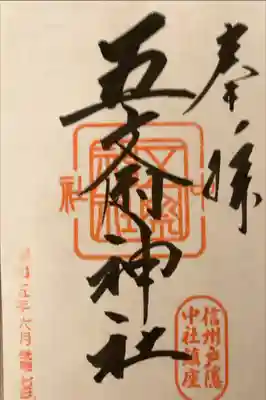 奉拝
五斎神社
社
信州戸隠
中社鎮座
年六月